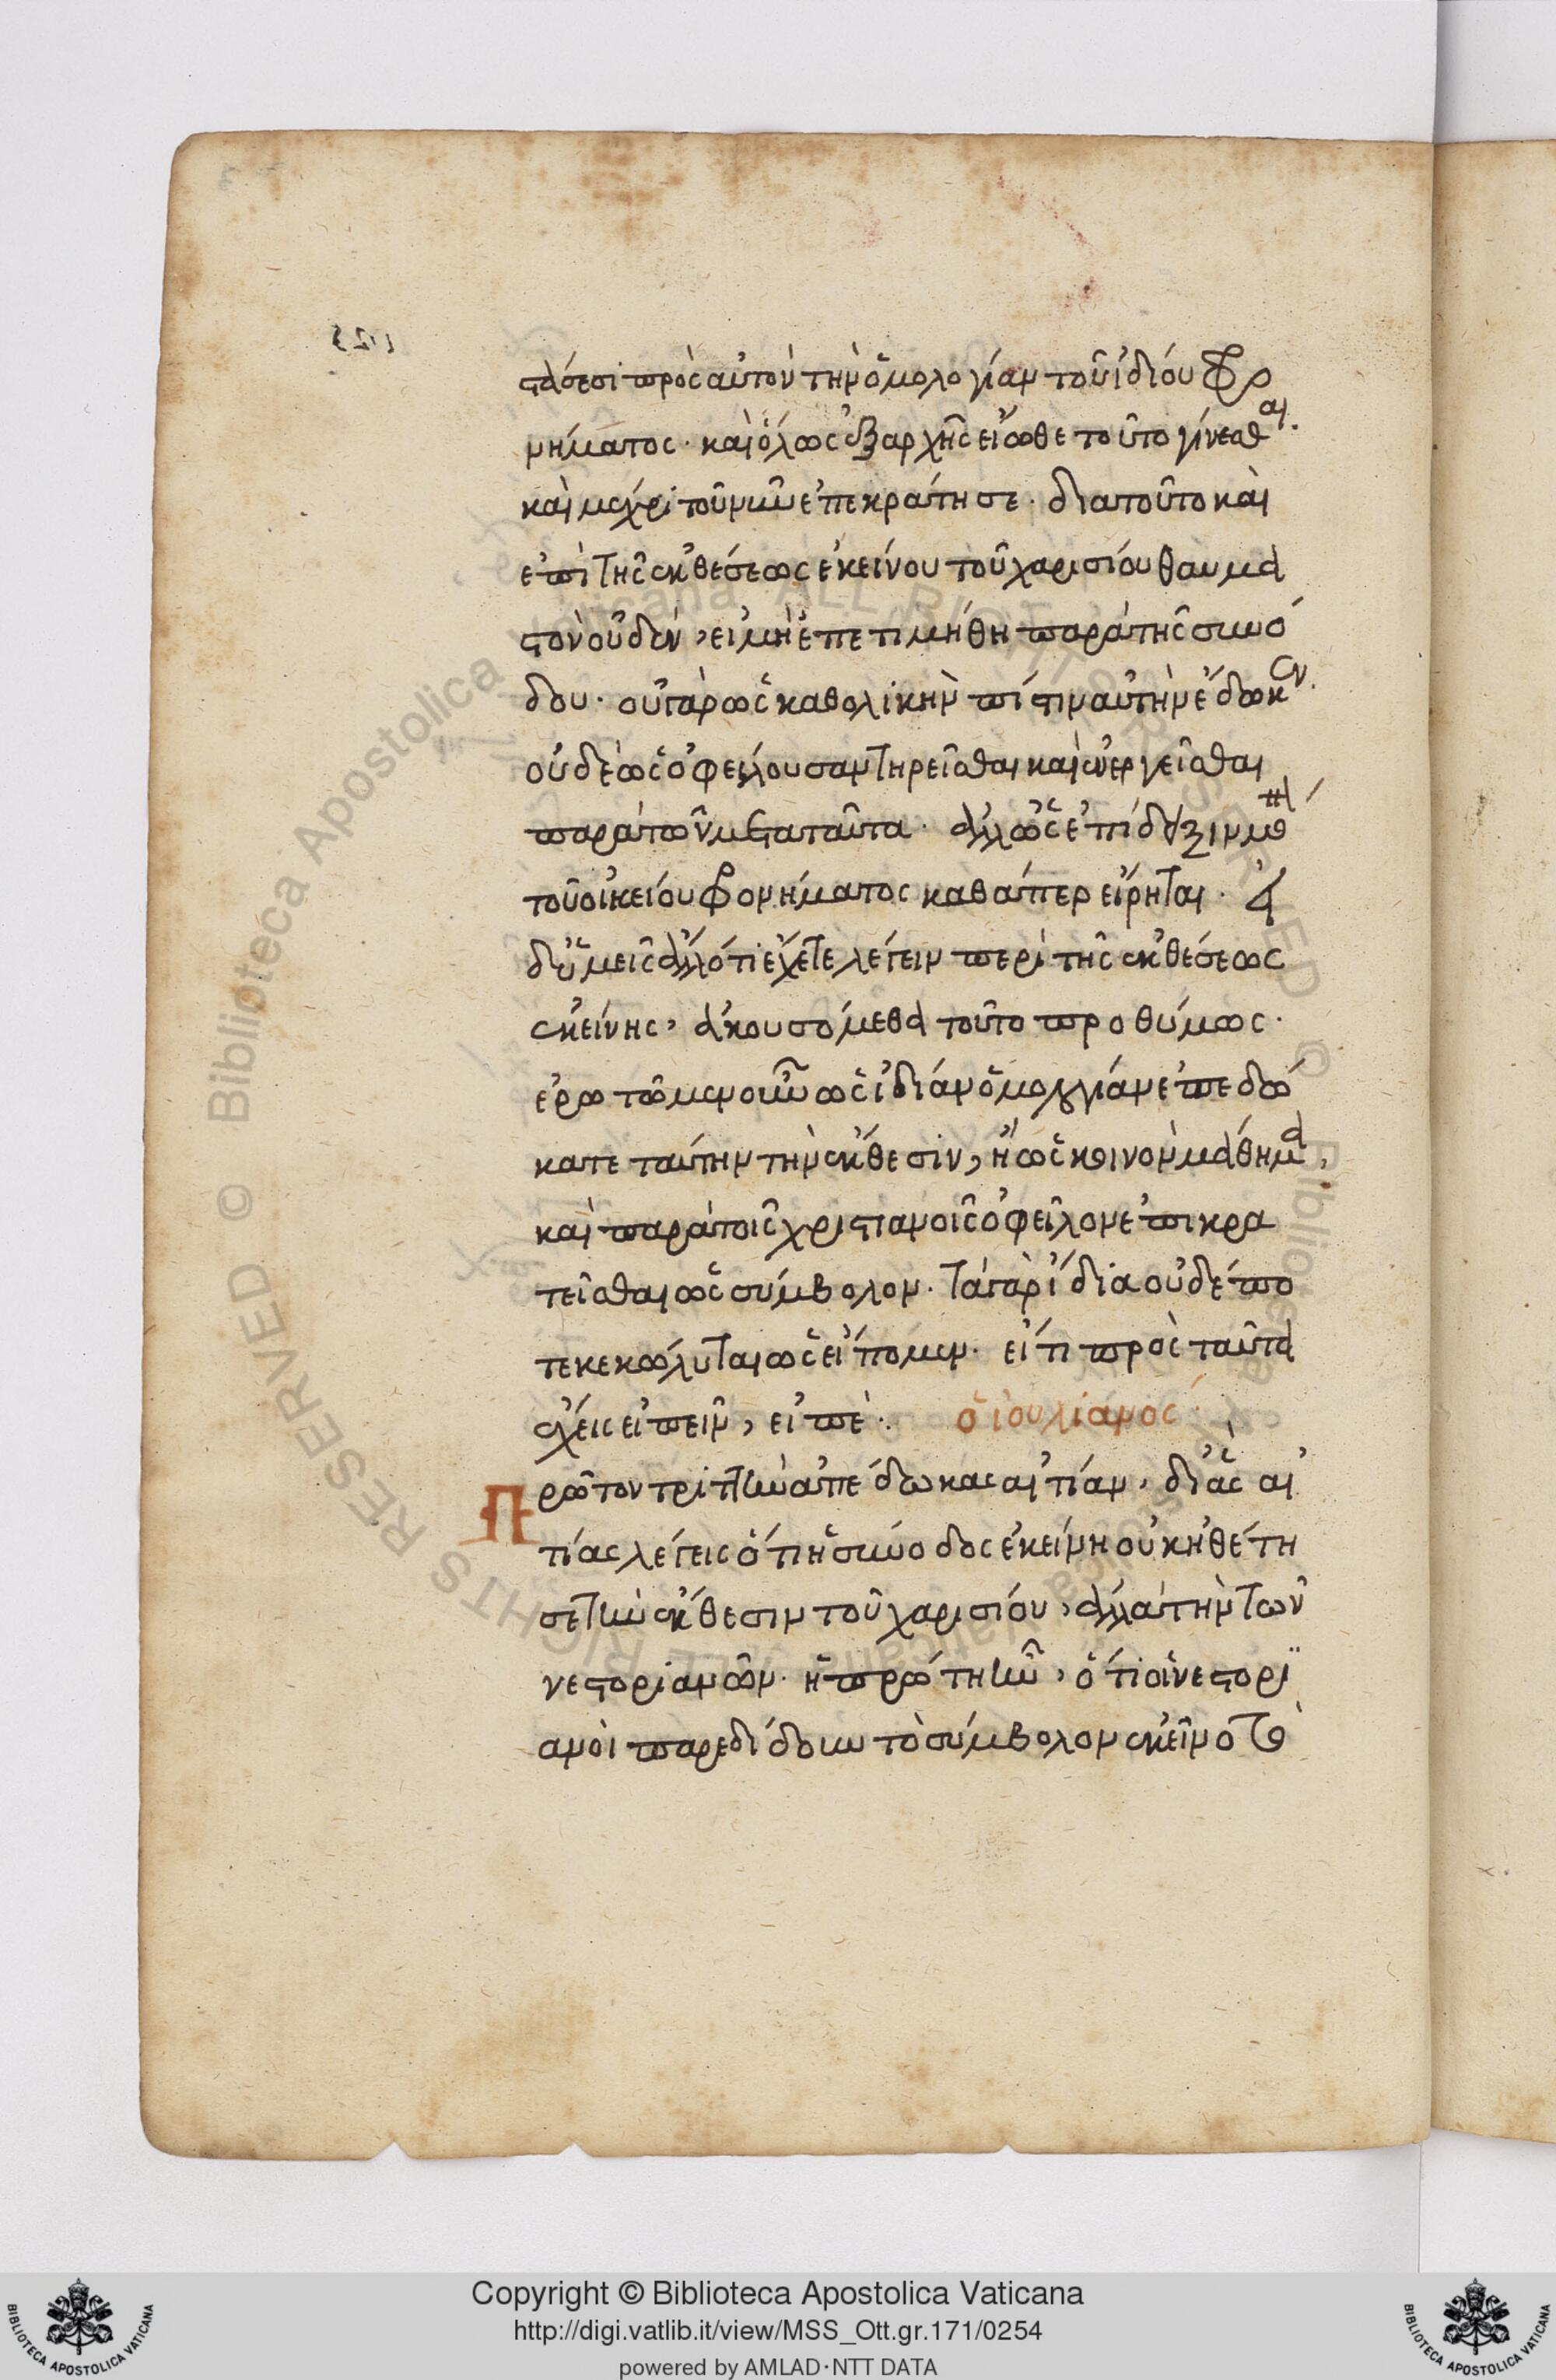 στάσεσι πρὸς αὐτὸν τὴν ὁμολογίαν τοῦ ἰδίου φρο
νήματος· καὶ ὅλως ἐξ ἀρχῆς εἴωθε τοῦτο γίνεσθαι·
καὶ μέχρι τοῦ νῦν ἐπεκράτησε· διατοῦτο καὶ
ἐπὶ τῆς ἐκθέσεως ἐκείνου τοῦ χαρισίου θαυμα
στὸν οὐδὲν, εἰ μὴ ἐπετιμήθη παρὰ τῆς συνό
δου· οὐ γὰρ ὡς καθολικὴν πίστιν αὐτὴν ἔδωκεν·
οὐδὲ ὡς ὀφείλουσαν τηρεῖσθαι καὶ ἐνεργεῖσθαι
παρὰ τῶν μετα ταῦτα· ἀλλ' ὡς ἐπίδειξιν μό
τοῦ οἰκείου φρονήματος καθάπερ εἴρηται· εἰ
δ' ὑμεῖς ἄλλό τι ἔχετε λέγειν περὶ τῆς ἐκθέσεως
ἐκείνης, ἀκουσόμεθα τοῦτο προθύμως·
ἐρωτῶμεν οὖν ὡς ἰδίαν ὁμολογίαν ἐπεδώ
κατε ταύτην τὴν ἔκθεσιν, ἢ ὡς κοινὸν μάθημα,
καὶ παρὰ τοῖς χριστιανοῖς ὀφεῖλον ἐπικρα
τεῖσθαι ὡς σύμβολον· τὰ γὰρ ἴδια οὐδέπο
τε κεκώλυται ὡς εἴπομεν· εἴ τι πρὸς ταῦτα
ἔχεις εἰπεῖν, εἰπέ· ὁ ἰουλίανος·
Πρῶτον τριττὴν ἀπέδωκας αἰτίαν, δι' ἃς αἰ
τίας λέγεις ὅτι ἡ σύνοδος ἐκείνη οὐκ ἠθέτη
σε τὴν ἔκθεσιν τοῦ χαρισίου, ἀλλὰ τὴν τῶν
νεστοριανῶν· ἡ πρώτη ἦν, ὅτι οἱ νεστορι
ανοὶ παρεδίδουν τὸ σύμβολον ἐκεῖνο τὸ
Copyright © Biblioteca Apostolica Vaticana
http://digi.vatlib.it/view/MSS_Ott.gr.171/0254
powered by AMLAD·NTT DATA